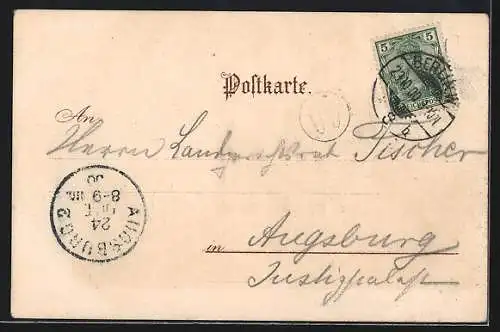 5 5
BERLIN W.
Postkarte.
An
Herrn Landgerichtsrat Tischer
AUGSBURG 2
24
8-9
00
in Augsburg
Justizpalast